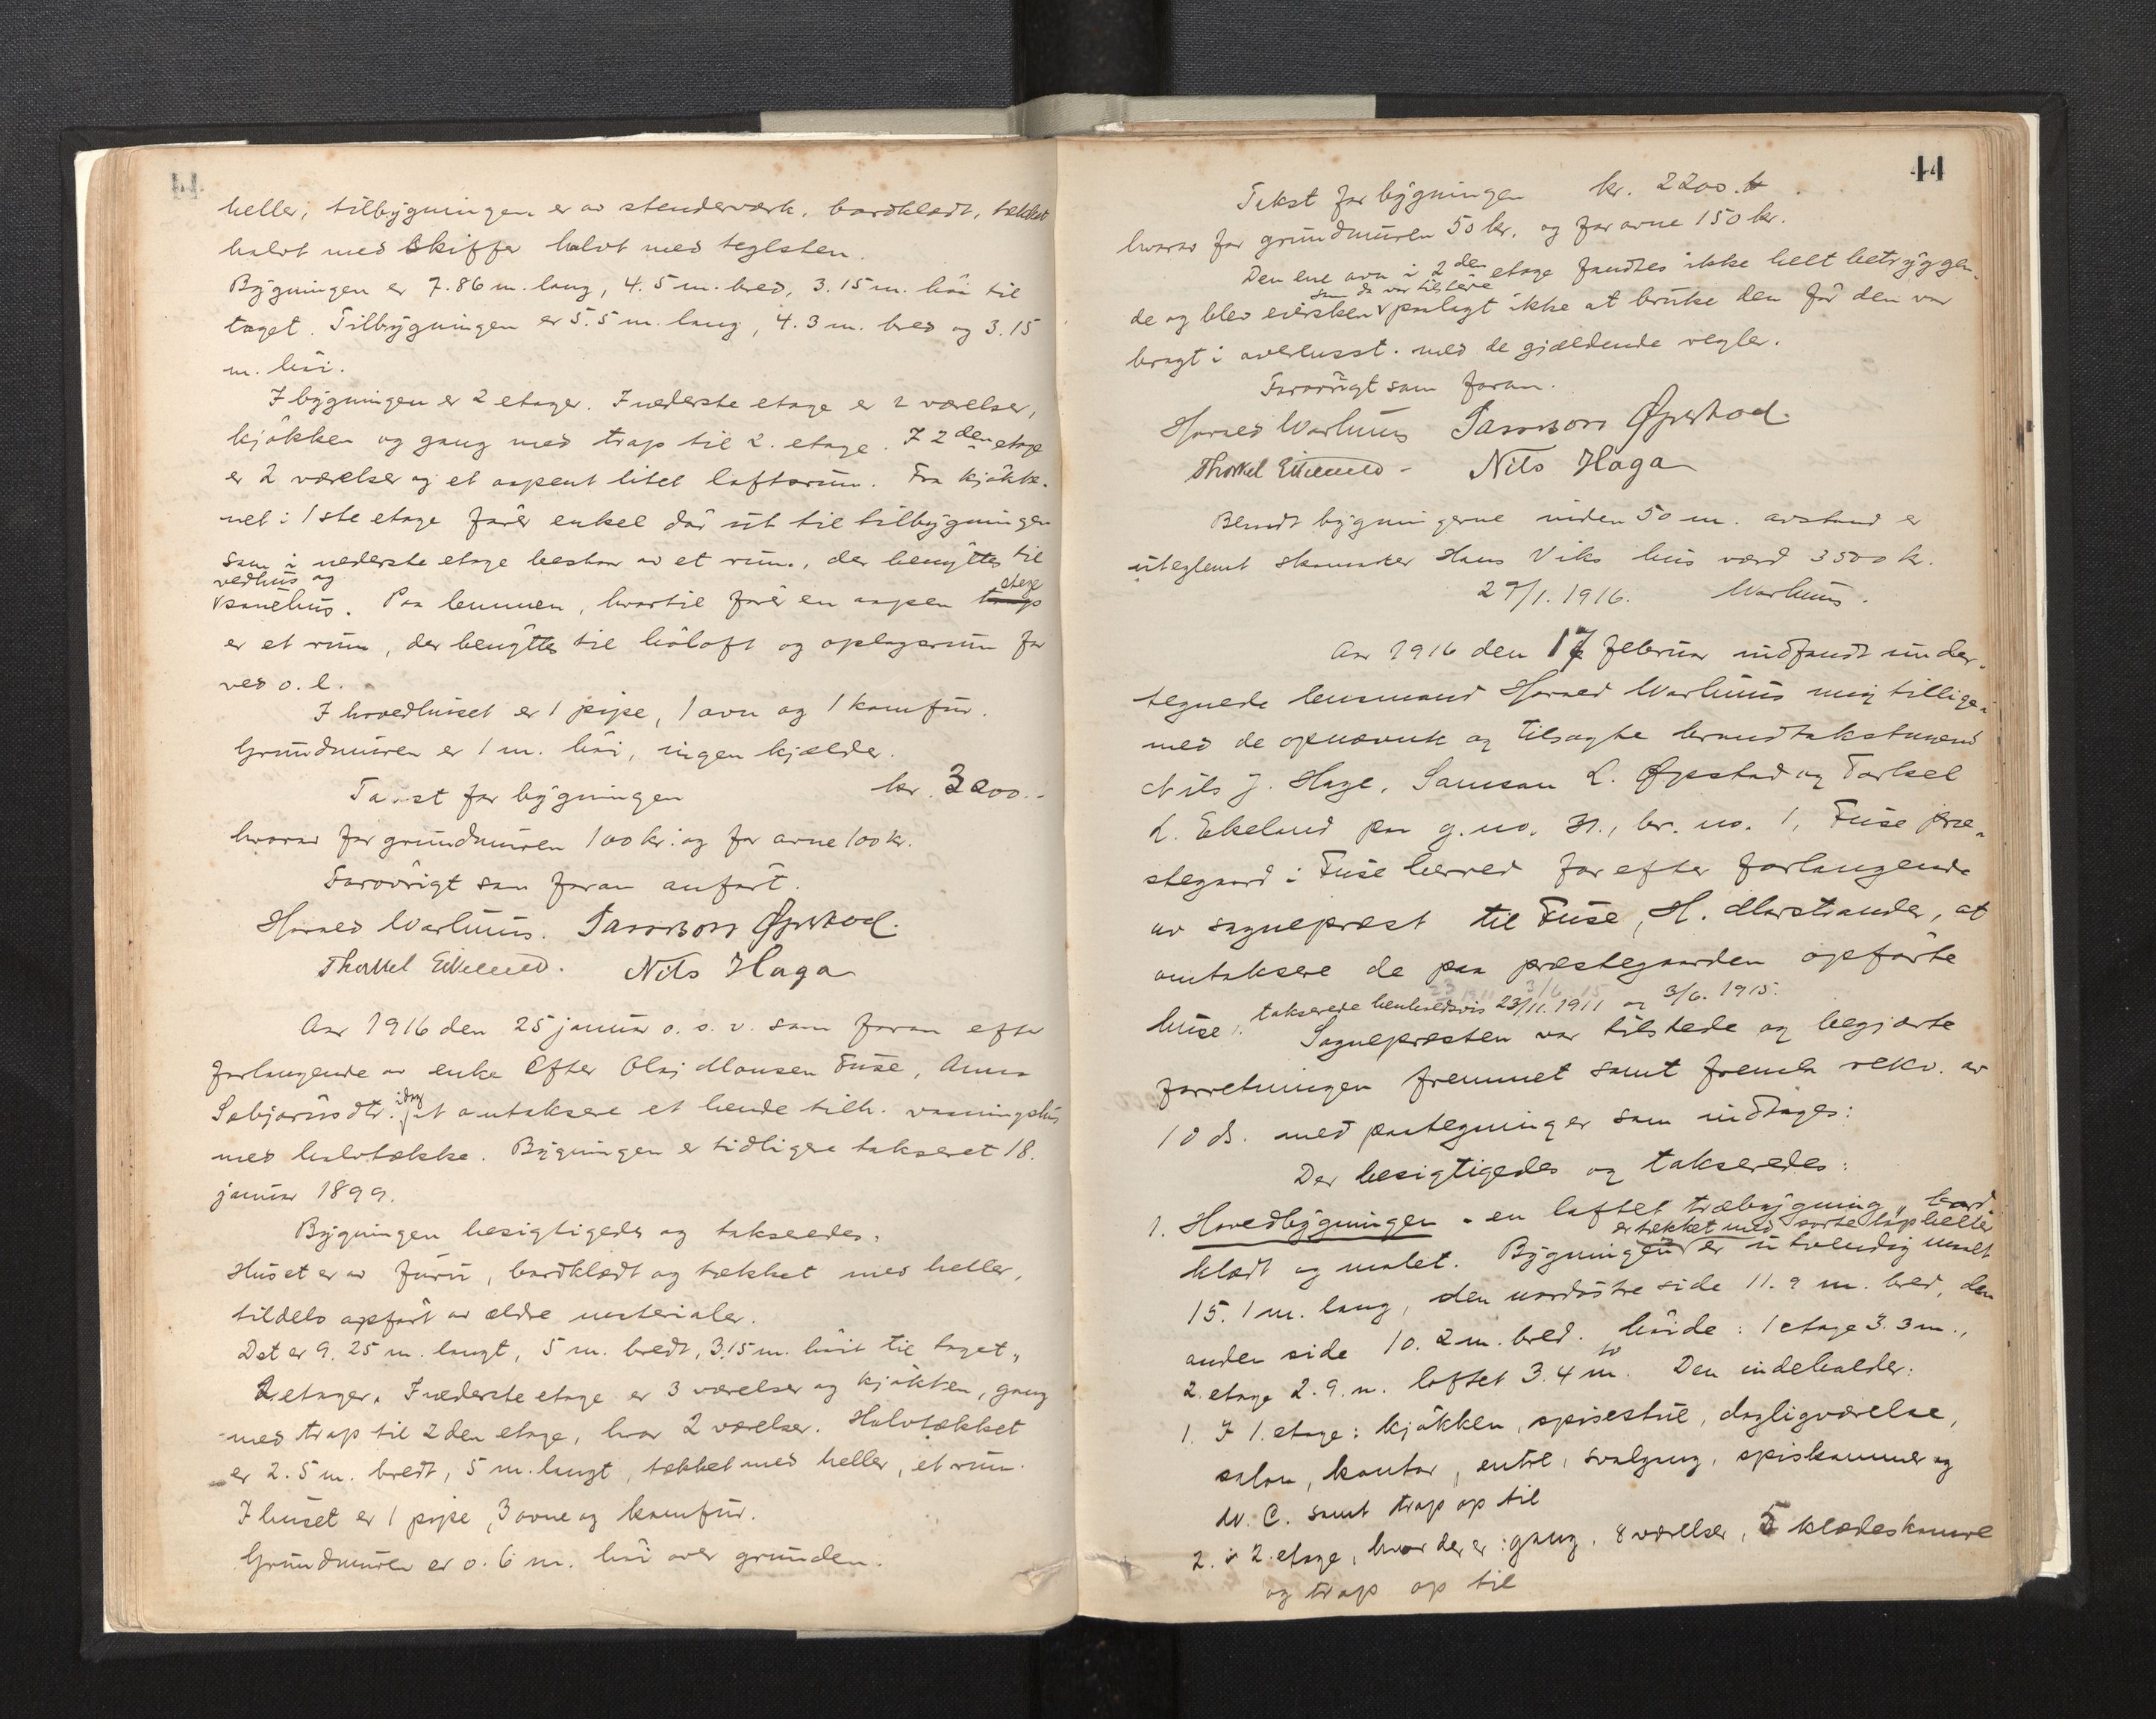 heller, tilbygningen er av stenderværk, bordklædt, tækket
halvt med skiffer halvt med teglsten.
Bygningen er 7.86 m. lang, 4.5 m. bred, 3.15 m. höi til
taget. Tilbygningen er 5.5 m. lang, 4.3 m. bred og 3.15
m. höi.
I bygningen er 2 etager. I nederste etage er 2 værelser,
kjökken og gang med trap til 2. etage. I 2 den etage
er 2 værelser og et aapent litet loftsrum. Fra kjökke-
net i 1ste etage förer enkel dör ut til tilbygningen
som i nederste etage bestaar av et rum, der benyttes til
vedhus og
sauehus. Paa lemmen, hvortil förer en aapen trap stege
er et rum, der benyttes til höloft og oplagsrum for
ved o. l.
I hovedhuset er 1 pipe, 1 ovn og 1 komfur.
Grundmuren er 1 m. höi, ingen kjælder.
Takst for bygningen kr. 3000.-
hvorav for grundmuren 100 kr. og for ovne 100 kr.
Forövrigt som foran anfört.
Harald Warhuus. Samson Øpstad.
Thorkel Eikeland. Nils Haga
Aar 1916 den 25 januar o. s. v. som foran efter
forlangende av enke efter Olaj Monsen Fuse, Anna
Sebjörnsdtr. idag at omtaksere et hende tilh. vaaningshus
med halvtække. Bygningen er tidligere takseret 18.
januar 1899.
Bygningen besigtigedes og takseredes.
Huset er av furu, bordklædt og tækket med heller,
tildels opfört av ældre materialer.
Det er 9.25 m. langt, 5 m. bredt, 3.15 m. höit til taget,
2 etager. I nederste etage er 3 værelser og kjökken, gang
med trap til 2den etage, hvor 2 værelser. Halvtækket
er 2.5 m. bredt, 5 m. langt, tækket med heller, et rum.
I huset er 1 pipe, 3 ovne og komfur.
Grundmuren er 0.6 m. höi over grunden.
44
Takst for bygningen kr. 2200.
hvorav for grundmuren 50 kr. og for ovne 150 kr.
Den ene ovn i 2 den etage fandtes ikke helt betryggen-
som da var tilstede
de og blev eiersken paalagt ikke at bruke den för den var
bragt i overensst. med de gjældende regler.
Forövrigt som foran.
Harald Warhuus Samson Øpstad
Thorkel Eikeland - Nils Haga
Blandt bygningerne inden 50 m. avstand er
uteglemt skomaker Hans Viks hus værd 3500 kr.
29/1. 1916. Warhuus.
Aar 1916 den 17 februar indfandt under-
tegnede lensmand Harald Warhuus mig tillige-
med de opnævnte og tilsagte brandtakstmænd
Nils J. Hage, Samson L. Øpstad og Torkel
L. Ekeland paa g.no. 31., br. no. 1, Fuse præ-
stegaard i Fuse herred for efter forlangende
av sogneprest til Fuse, H. Marstrander, at
omtaksere de paa præstegaarden opförte
huse, takserede henholdsvis 23/11. 1911 og 3/6. 1915.
Sognepresten var tilstede og begjærte
forretningen fremmet samt fremla rekv. av
10 ds. med paategninger som indtages:
Der besigtigedes og takseredes:
1. Hovedbygningen - en loftet træbygning, bord-
er tækket med sorte tapheller
klædt og malet. Bygningen er utvendig maalt
15.1 m. lang, den nordöstre side 11.9 m. bred, den
anden side 10.2 m. bred. Höide: 1 etage 3.3 m.,
2. etage 2.9. m. loftet 3.4 m. Den indeholder:
1. I 1. etage: kjökken, spisestue, dagligværelse,
salon, kontor, entré, svalgang, spiskammer og
W. C. samt trap op til
2. i 2. etage, hvor der er: gang, 8 værelser, 5 klædeskamre
og trap op til